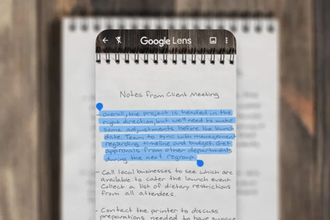 Google Lens
Notes from Client Meeting
- Overall, the project is headed in the
right direction, but we'll need to make
some adjustments before the launch
date. Team to sync with management
regarding timeline and budget. Get
approvals from other departments
during the next regroup.
- Call local businesses to see which are
available to cater the launch event.
Collect a list of dietary restrictions
from all attendees.
- Contact the printer to discuss
preparations needed to have